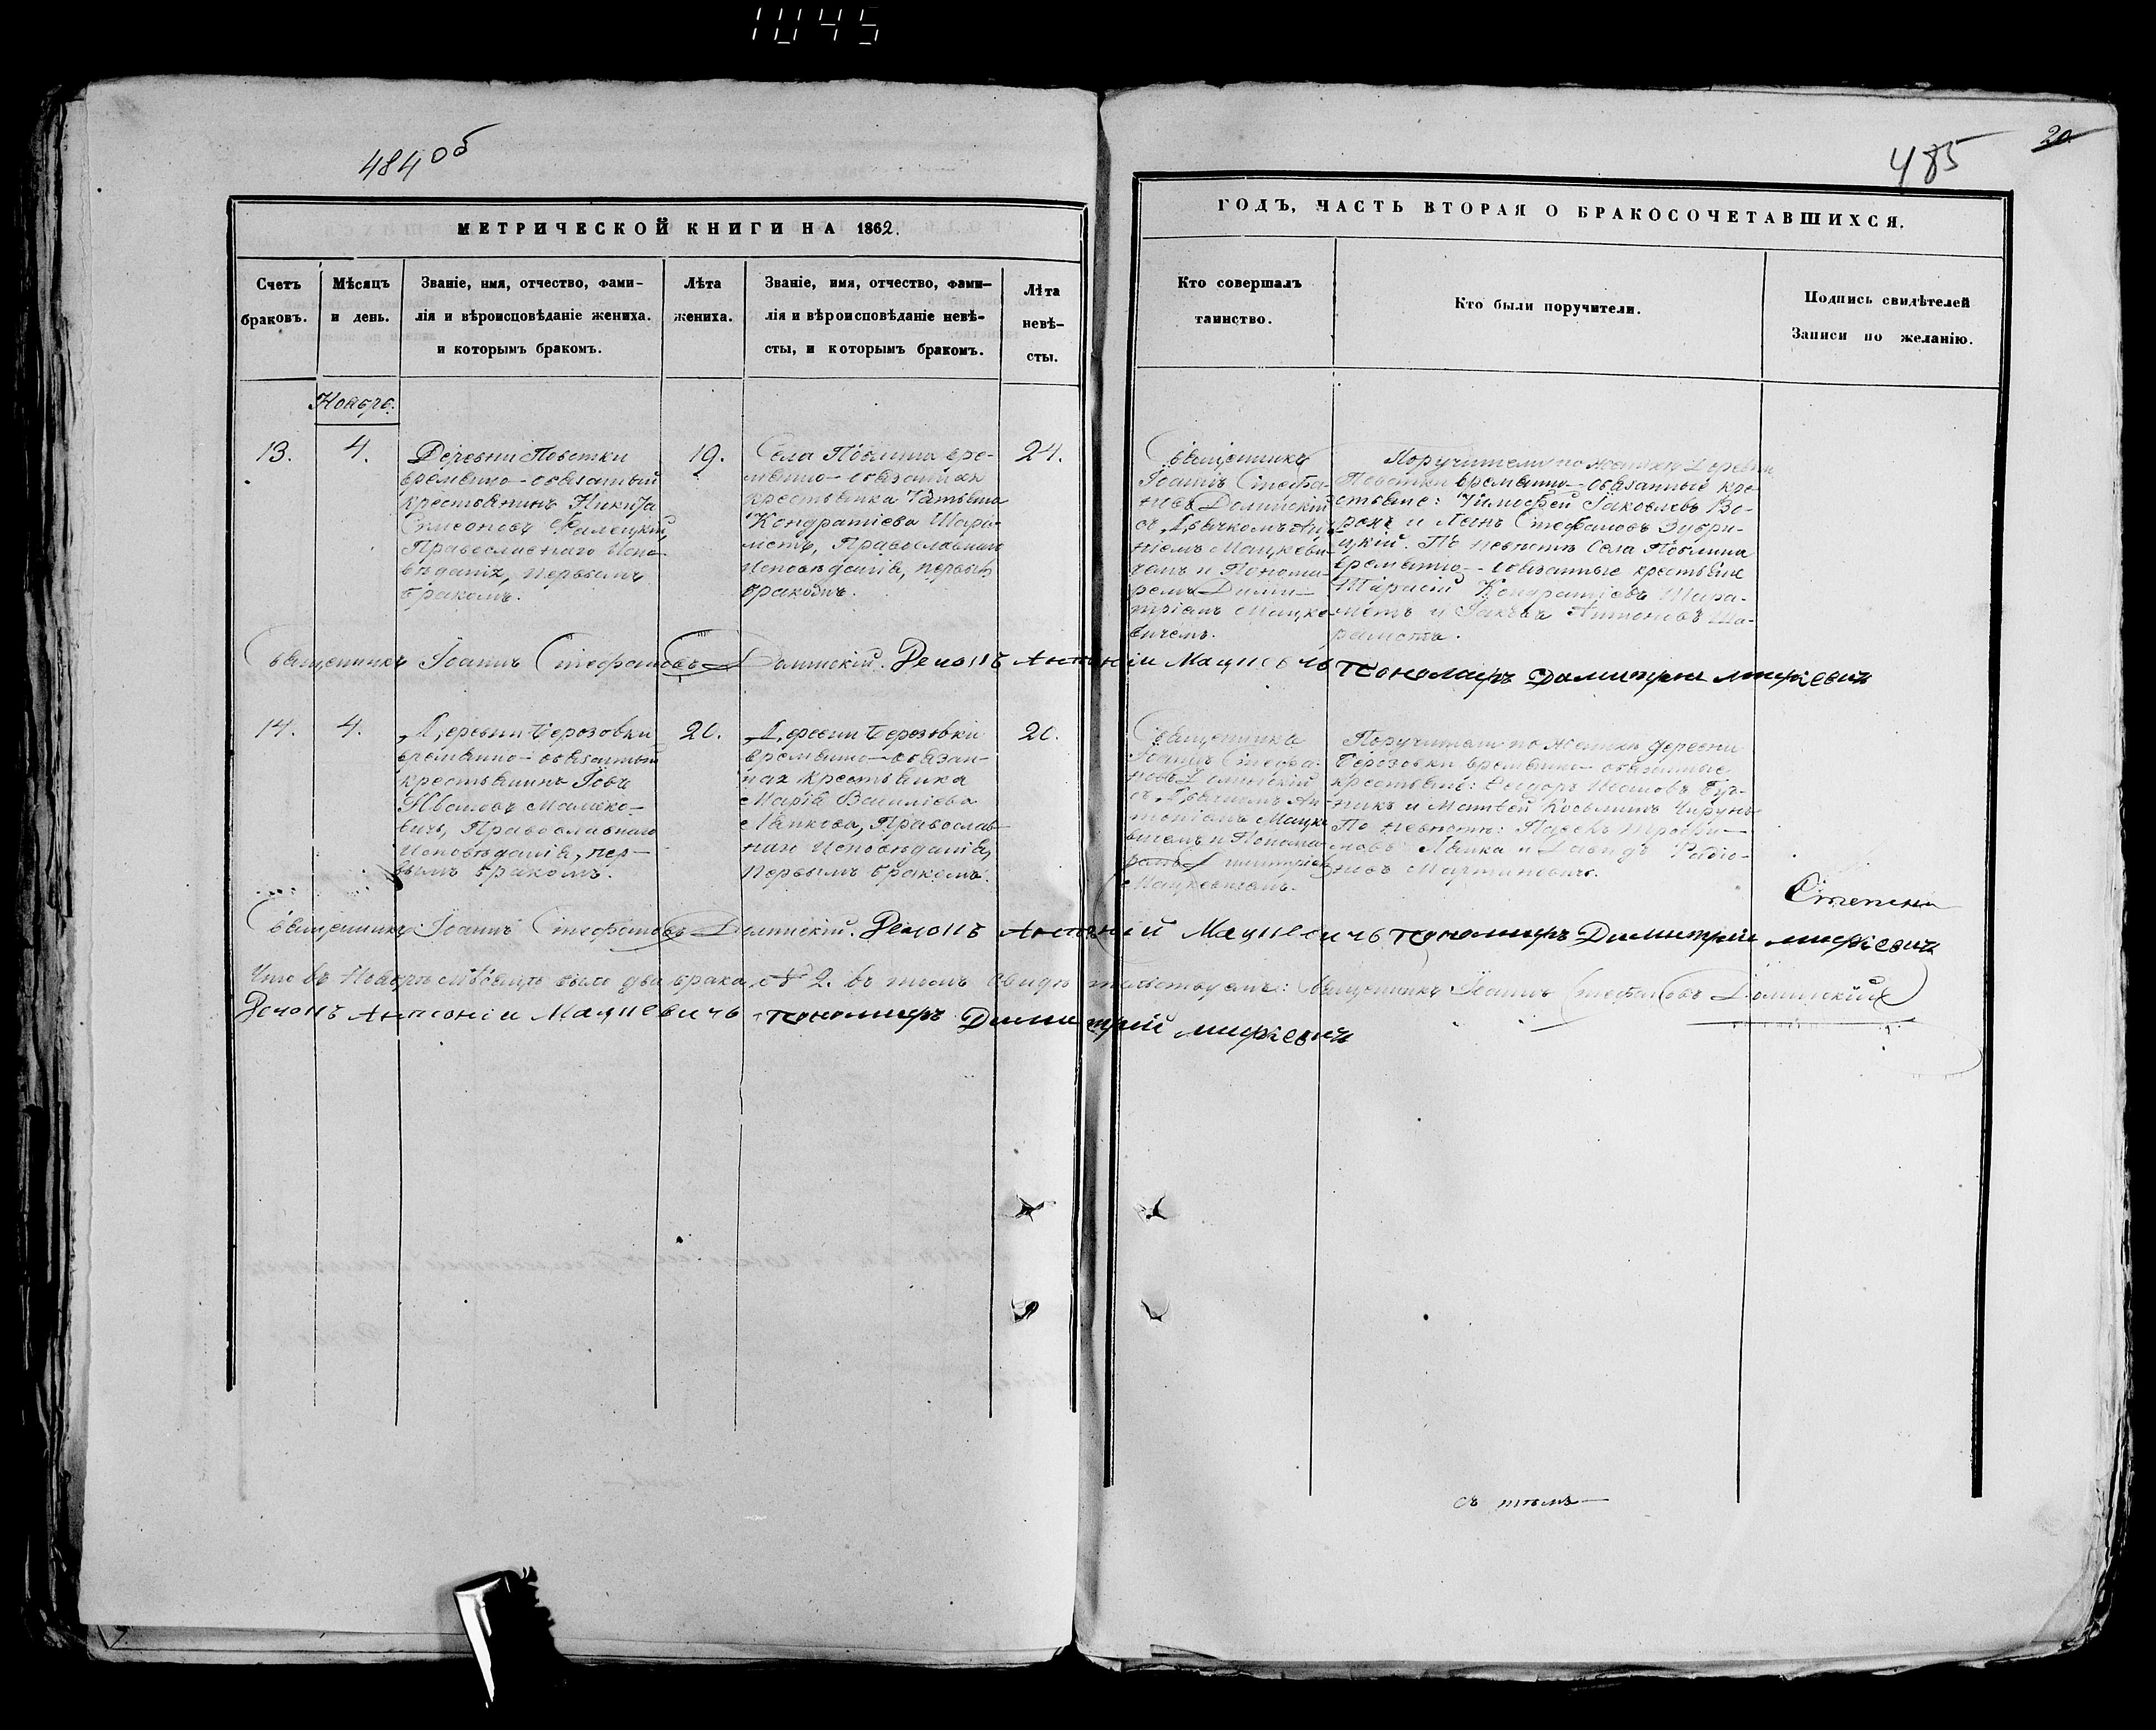 1045
484об
485
20
МЕТРИЧЕСКОЙ КНИГИ НА 1862.
Счетъ
браковъ.
Мѣсяцъ
и день.
Званіе, имя, отчество, фами-
лія и вѣроисповѣданіе жениха.
и которымъ бракомъ.
Лѣта
жениха.
Званіе, имя, отчество, фами-
лія и вѣроисповѣданіе невѣ-
сты, и которымъ бракомъ.
Лѣта
невѣ-
сты.
ГОДЪ, ЧАСТЬ ВТОРАЯ О БРАКОСОЧЕТАВШИХСЯ.
Кто совершалъ
таинство.
Кто были поручители.
Подпись свидѣтелей
Записи по желанію.
Ноябрь.
13.
4.
Деревни Повстки
временно-обязанный
крестьянинъ Никита
Симеоновъ Фалецкій,
Православнаго Испо-
вѣданія, первымъ
бракомъ.
19.
Села Поблина вре-
менно-обязанная
крестьянка Татьяна
Кондратіева Шара-
метъ, Православнаго
Исповѣданія, первымъ
бракомъ.
24.
Священникъ
Іоаннъ Стефа-
новъ Долинскій
съ Дьячкомъ Анто-
ніемъ Мацкеви-
чемъ и Понома-
ремъ Дими-
тріемъ Мацке-
вичемъ.
Поручители по женихѣ Деревни
Повстки временно-обязанные кре-
стьяне: Тимофей Іаковлевъ Во-
ронъ и Іоанъ Стефановъ Зубри-
цкій. По невѣстѣ Села Поблина
временно-обязанные крестьяне
Тарасій Кондратіевъ Шара-
метъ и Іаковъ Антоновъ Ша-
раметъ.
Священникъ Іоаннъ Стефановъ Долинскій. Дечокъ Антоній Мацкевичъ Пономаръ Димитрій Мацкевичъ
14.
4.
Деревни Березовки
временно-обязанный
крестьянинъ Іовъ
Ивановъ Малахо-
вичъ, Православнаго
Исповѣданія, пер-
вымъ бракомъ.
20.
Деревни Березовки
временно-обязан-
ная крестьянка
Марія Василіева
Лапкова, Православ-
наго Исповѣданія,
Первымъ бракомъ.
20.
Священникъ
Іоаннъ Стефа-
новъ Долинскій
съ Дьячкомъ Ан-
тоніемъ Мацке-
вичемъ и Понома-
ремъ Димитріемъ
Мацкевичемъ.
Поручители по женихѣ деревни
Березовки временно-обязанные
крестьяне: Ѳеодоръ Ивановъ
и Матвей Косьминъ
По невѣстѣ: Трофи-
мовъ Лапка и Давидъ Радіо-
новъ Мартиновичъ.
Степени
Священникъ Іоаннъ Стефановъ Долинскій. Дечокъ Антоній Мацкевичъ Пономаръ Димитрій Мацкевичъ
Что въ Ноябрѣ мѣсяцѣ было два брака, № 2. въ томъ свидѣтельствуемъ: Священникъ Іоаннъ Стефановъ Долинскій
Дечокъ Антоній Мацкевичъ Пономаръ Димитрій Мацкевичъ
съ тѣмъ